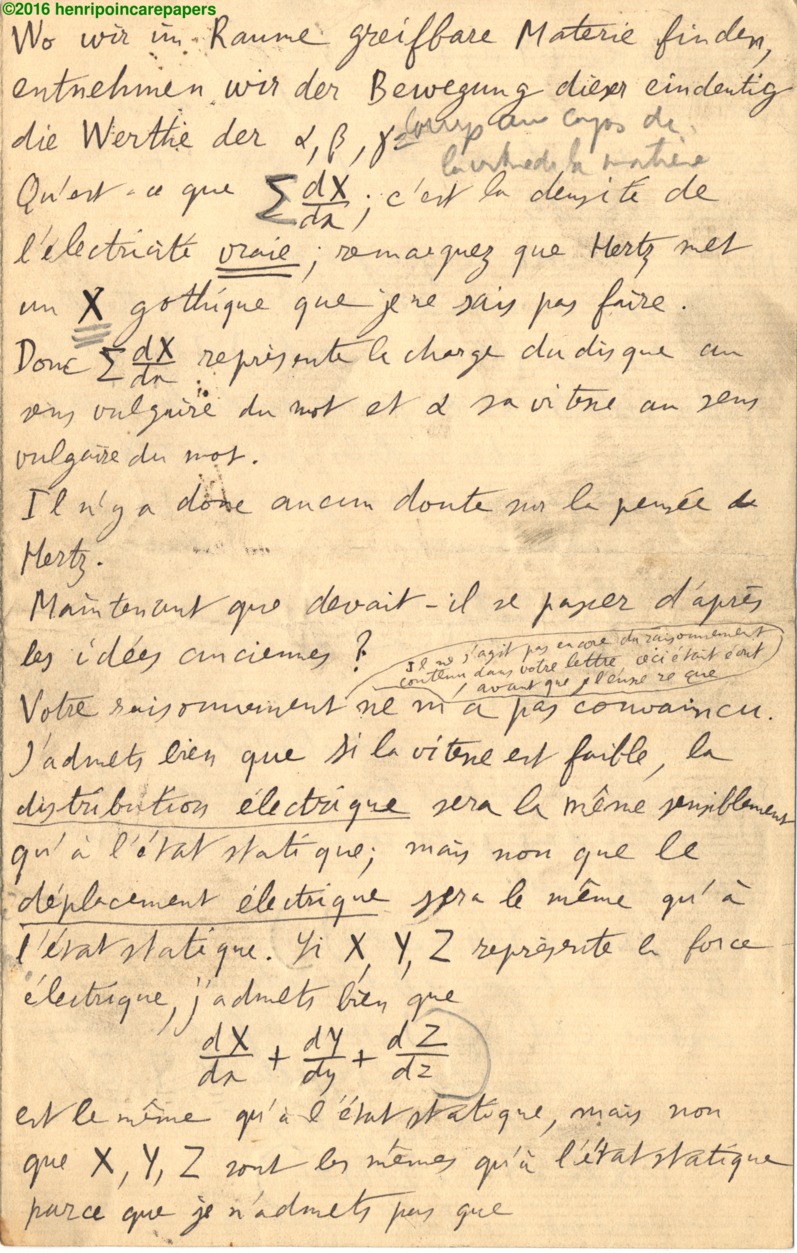 ©2016 henripoincarepapers
Wo wir im Raume greifbare Materie finden,
entnehmen wir der Bewegung dieser eindeutig
die Werthe der α, β, γ
la vitesse de la matière
Qu'est-ce que ∑ dX/dx ; c'est la densité de
l'électricité vraie ; remarquez que Hertz met
un X gothique que je ne sais pas faire.
Donc ∑ dX/dx représente la charge du disque au
sens vulgaire du mot et α sa vitesse au sens
vulgaire du mot.
Il n'y a donc aucun doute sur la pensée de
Hertz.
Maintenant que devait-il se passer d'après
les idées anciennes ?
Il ne s'agit pas encore du raisonnement
contenu dans votre lettre, ceci était écrit
avant que je l'eusse reçue
Votre raisonnement ne m'a pas convaincu.
J'admets bien que si la vitesse est faible, la
distribution électrique sera la même sensiblement
qu'à l'état statique; mais non que le
déplacement électrique sera le même qu'à
l'état statique. Si X, Y, Z représente la force
électrique, j'admets bien que
dX/dx + dY/dy + dZ/dz
est le même qu'à l'état statique, mais non
que X, Y, Z sont les mêmes qu'à l'état statique
parce que je n'admets pas que